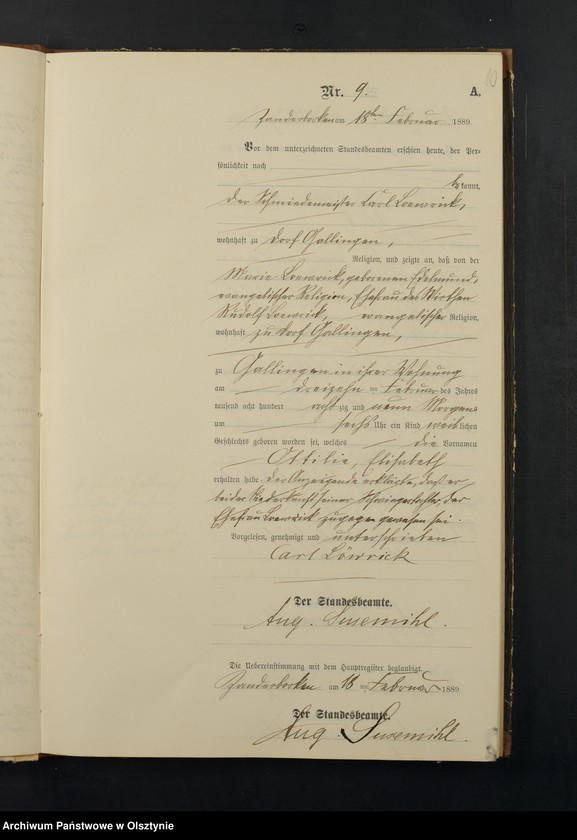 10
Nr. 9. A.
Zanderborken am 18ten Februar 1889.
Vor dem unterzeichneten Standesbeamten erschien heute, der Per-
sönlichkeit nach
bekannt,
der Schmiedemeister Carl Loewrick,
wohnhaft zu Dorf Gallingen,
Religion, und zeigte an, daß von der
Marie Loewrick, geborenen Edelmund,
evangelischer Religion, Ehefrau des Wirthen
Rudolf Loewrick, evangelischer Religion,
wohnhaft zu Dorf Gallingen,
zu Gallingen in ihrer Wohnung
am dreizehn ten Februar des Jahres
tausend acht hundert achtzig und neun Morgens
um sechs Uhr ein Kind weiblichen
Geschlechts geboren worden sei, welches die Vornamen
Ottilie, Elisabeth
erhalten habe. Der Anzeigende erklärte, daß er
bei der Niederkunft seiner Schwiegertochter, der
Ehefrau Loewrick zugegen gewesen sei.
Vorgelesen, genehmigt und unterschrieben
Carl Löwrick
Der Standesbeamte.
Aug. Susemihl.
Die Uebereinstimmung mit dem Hauptregister beglaubigt.
Zanderborken am 18 ten Februar 1889
Der Standesbeamte.
Aug. Susemihl.
Archiwum Państwowe w Olsztynie